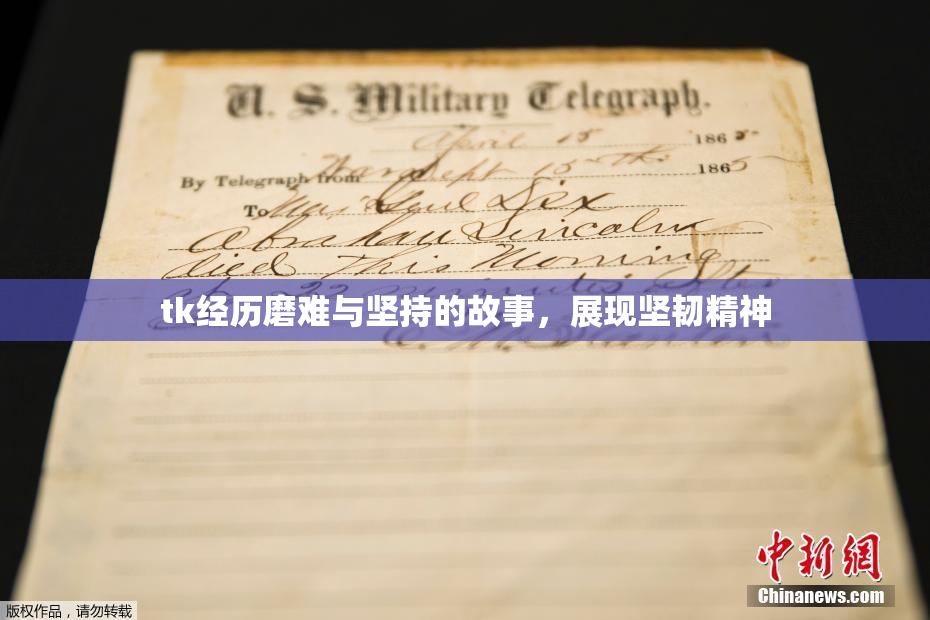 U. S. Military Telegraph.
April 15 1865
By Telegraph from War Dept 15th 1865
To Maj Genl Dix
Abraham Lincoln
died This Morning
at 22 minutes after
tk经历磨难与坚持的故事，展现坚韧精神
E. M. Stanton
中新网
Chinanews.com
版权作品，请勿转载